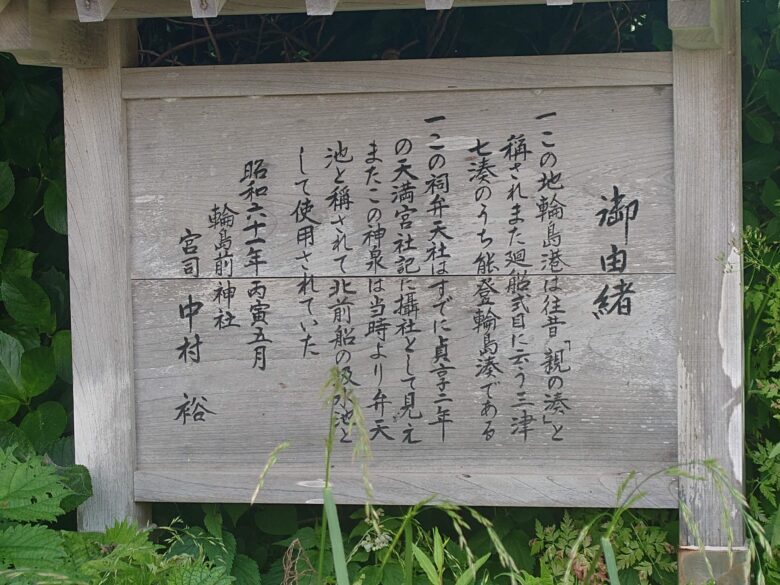 御由緒
一この地輪島港は往昔「親の湊」と
称されまた廻船式目に云う三津
七湊のうち能登輪島湊である
一この祠弁天社はすでに貞享二年
の天満宮社記に攝社として見え
またこの神泉は当時より弁天
池と称されて北前船の吸水池と
して使用されていた
昭和六十一年丙寅五月
輪島前神社
宮司 中村 裕